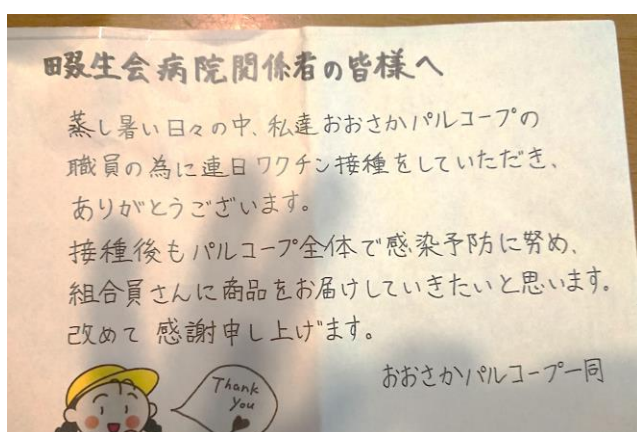 畷生会病院関係者の皆様へ
蒸し暑い日々の中、私達おおさかパルコープの
職員の為に連日ワクチン接種をしていただき、
ありがとうございます。
接種後もパルコープ全体で感染予防に努め、
組合員さんに商品をお届けしていきたいと思います。
改めて感謝申し上げます。
おおさかパルコープ一同
Thank
You